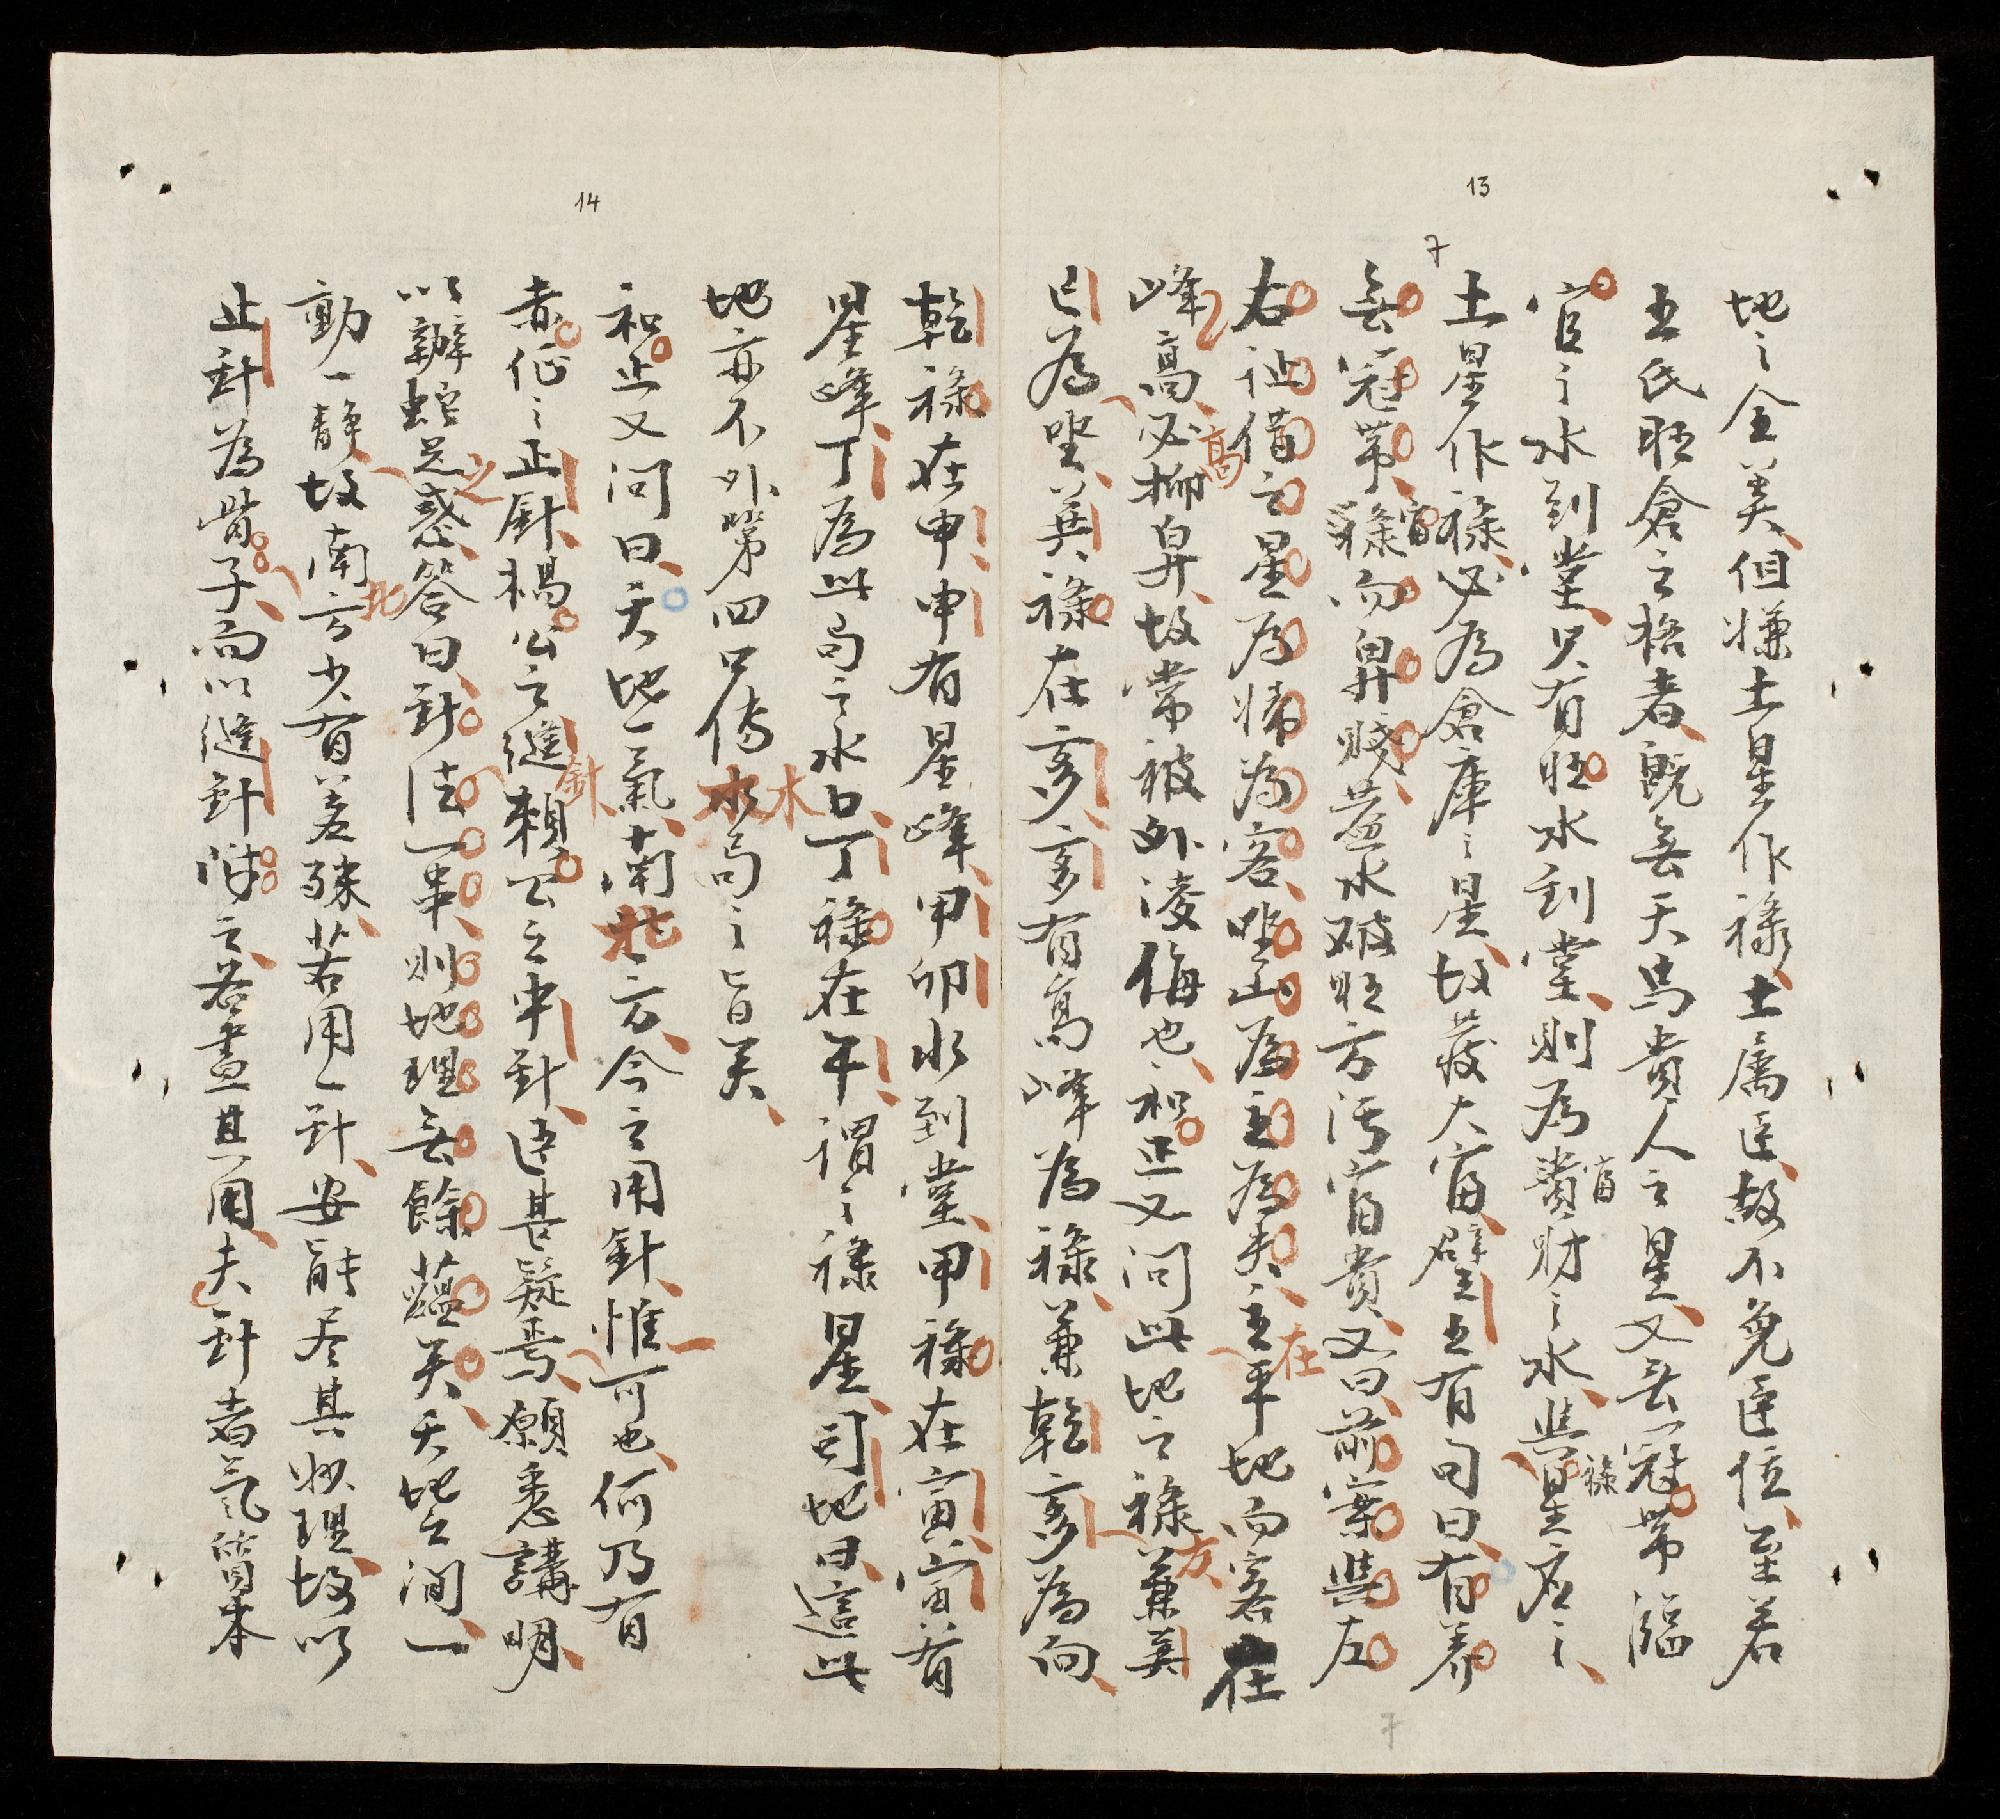 13
7
地之全美但嫌土星作祿土屬臣故不免臣位至若
五氏旺倉之格者既無天馬貴人之星又無冠帶臨
官之水到堂只有旺水到堂則為富貴財之水與祿星応之
土星作祿必為倉庫之星故葭大富璧五有句曰有养
無冠帶富祿而卑賤蓋水破旺方污富貴又曰前案與左
右砂借之星為情為客坐山為主為夫主在平地而客在
峰高必抑卑高故常被外淩侮也起正又問此地之祿方兼巽
巳為坐巽祿在亥亥有高峰為祿兼乾亥為向
14
乾祿在申申有星峰甲卯水到堂甲祿在寅寅有
星峰丁為此局之水口丁祿在午謂之祿星司地曰這此
地亦不外第四口傳水木局之旨矣
起正又問曰天地一氣南北一方今之用針惟一可也何乃有
赤伾之正針楊公之縫針賴公之中針臣甚疑焉願悉講明
以辦蛇足之惑答曰針法一事則地理無餘蘊矣天地之間一
動一静故南北方少有差殊若用一針安能尽其妙理故以
止針為骨子而以縫針浒之若盡其用夫針者气箇本
7